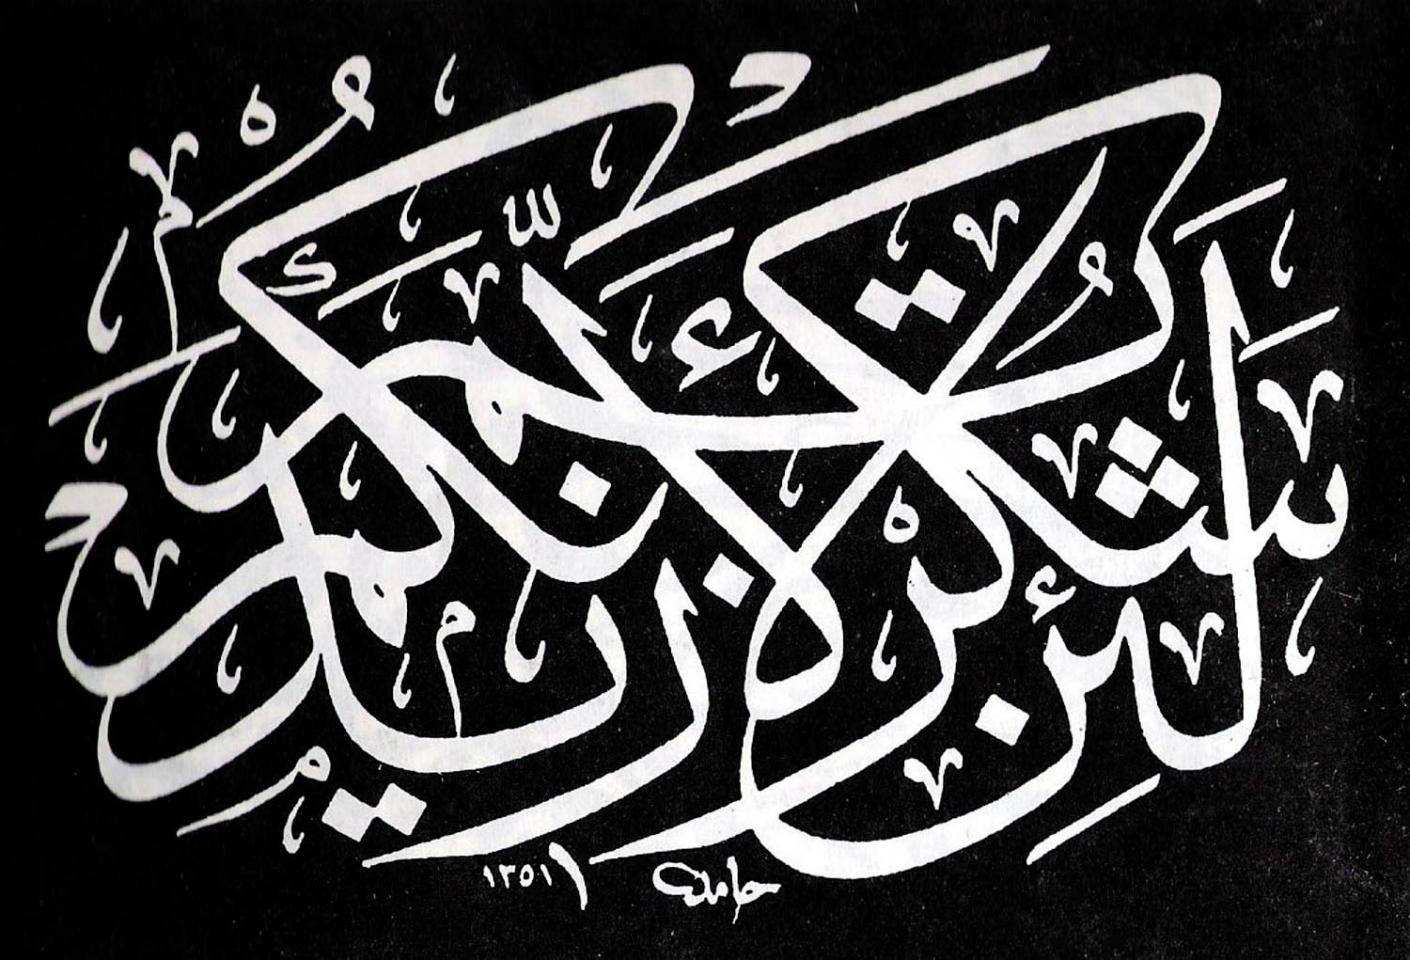 لَئِنْ شَكَرْتُمْ لَأَزِيدَنَّكُمْ
حامد ١٣٥١